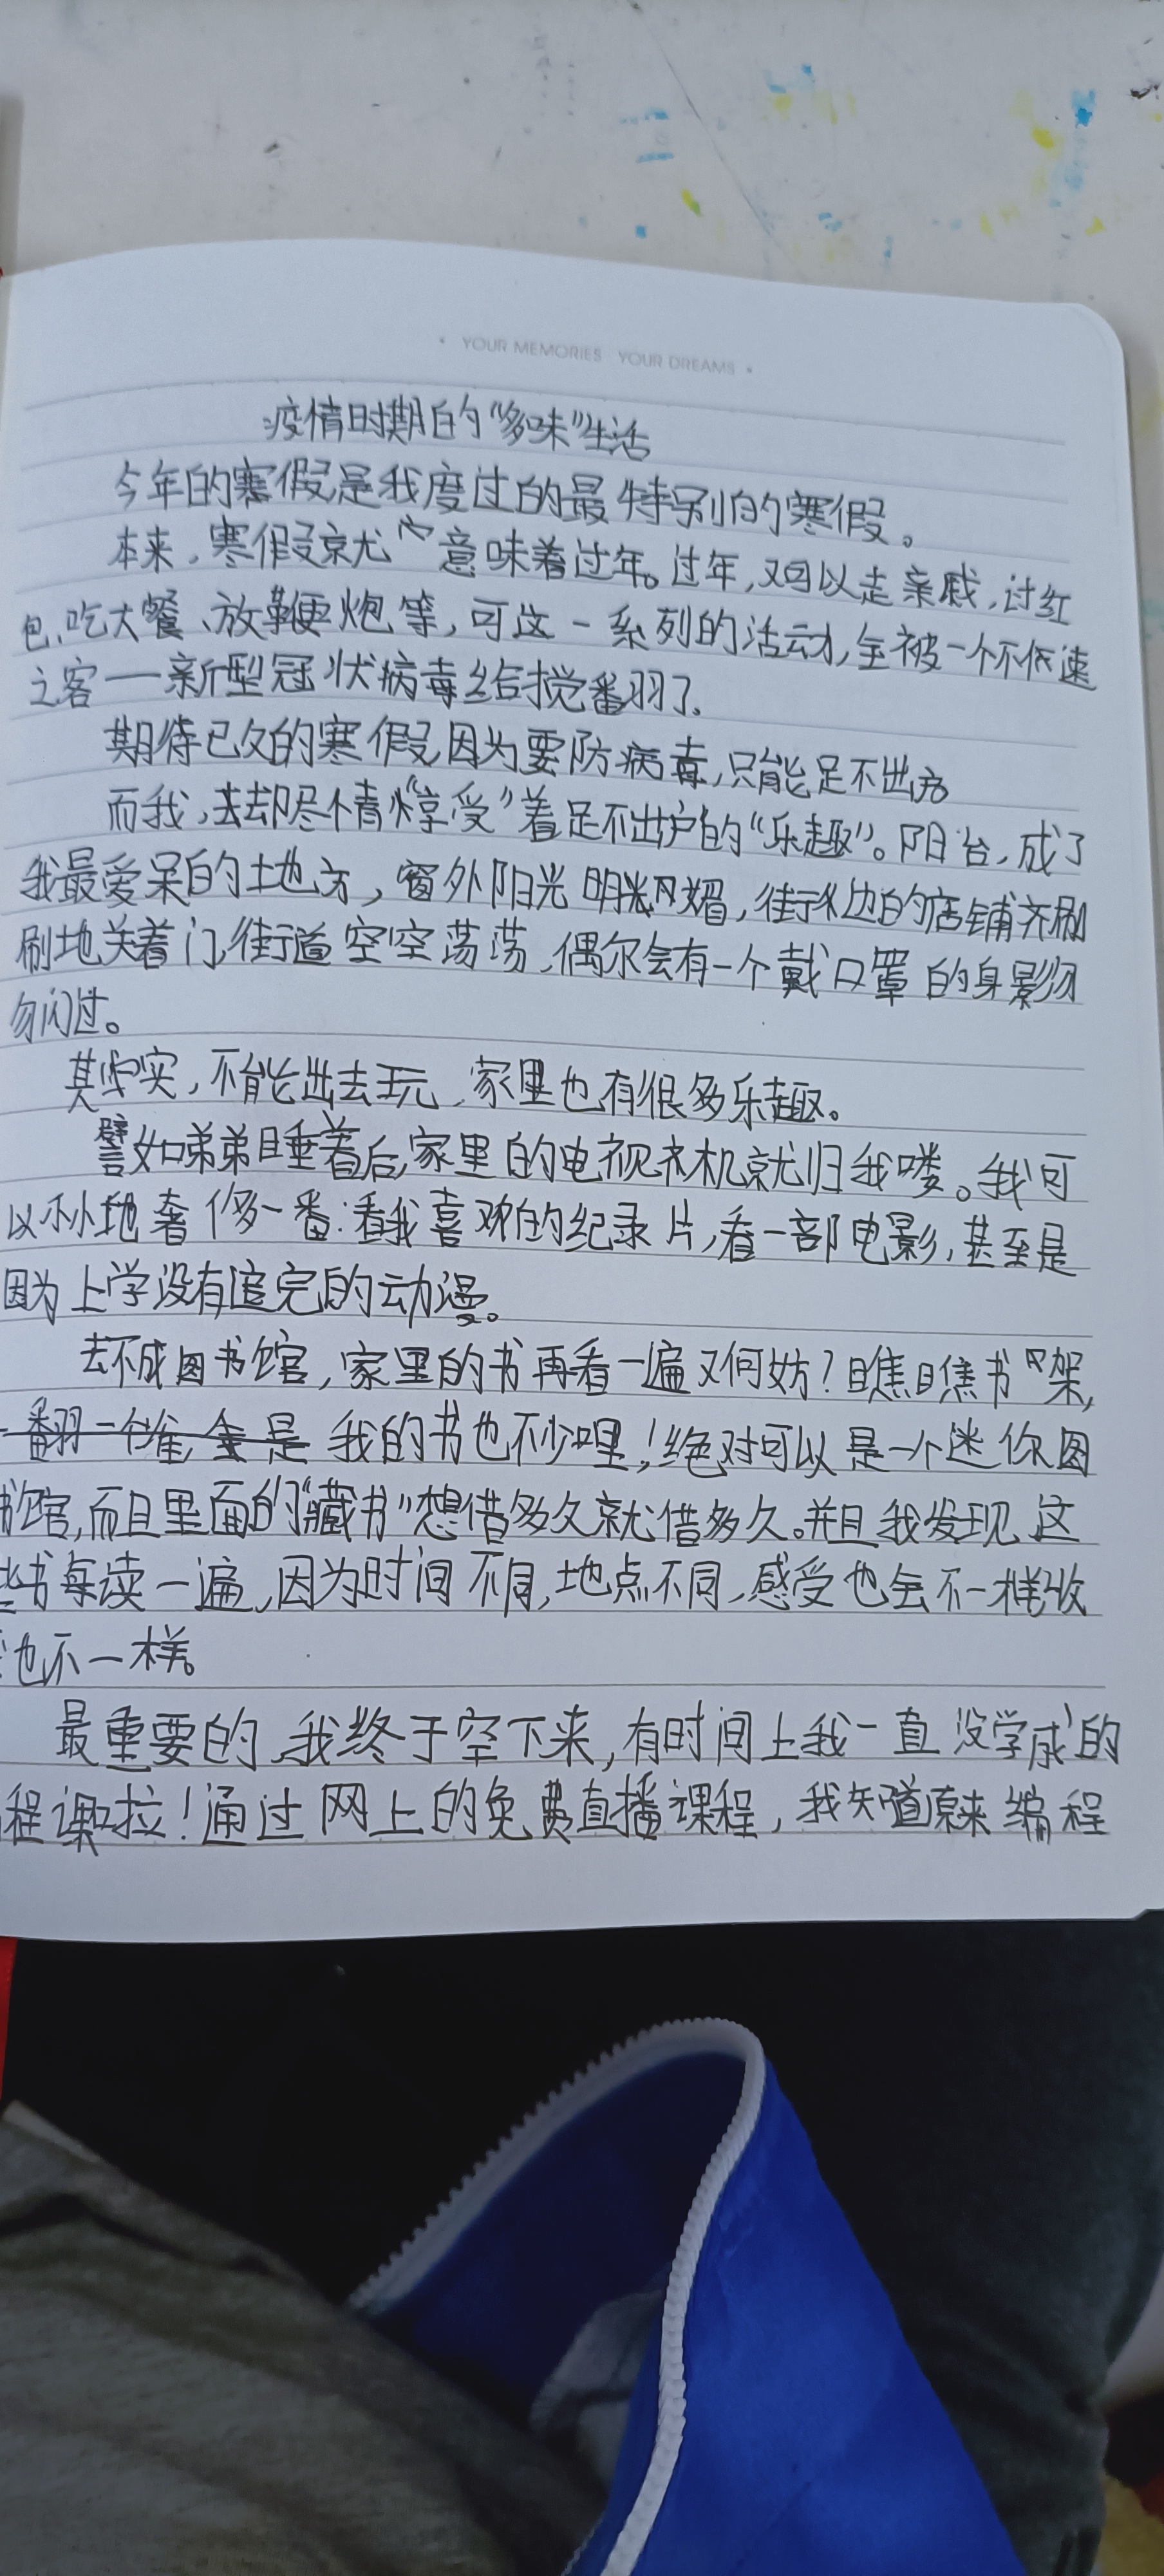 YOUR MEMORIES YOUR DREAMS
疫情时期的“多味”生活
今年的寒假是我度过的最特别的寒假。
本来,寒假就意味着过年。过年,又可以走亲戚,讨红
包、吃大餐、放鞭炮等,可这一系列的活动,全被一个不
之客——新型冠状病毒给搅翻了。
期待已久的寒假,因为要防病毒,只能足不出户
而我,却尽情“享受”着足不出户的“乐趣”。阳台,成了
我最爱呆的地方,窗外阳光明媚,街边的店铺齐刷
刷地关着门,街道空空荡荡,偶尔会有一个戴口罩的身影匆
匆闪过。
其实,不能出去玩,家里也有很多乐趣。
譬如弟弟睡着后,家里的电视机就归我喽。我可
以小小地奢侈一番:看我喜欢的纪录片,看一部电影,甚至是
因为上学没有追完的动漫。
去不成图书馆,家里的书再看一遍又何妨?瞧瞧书架,
我的书也不少哩!绝对可以是一个迷你图
书馆,而且里面的“藏书”想借多久就借多久。并且我发现,这
些书每读一遍,因为时间不同,地点不同,感受也会不一样,收
也不一样。
最重要的,我终于空下来,有时间上我一直没学成的
程课啦!通过网上的免费直播课程,我知道原来编程